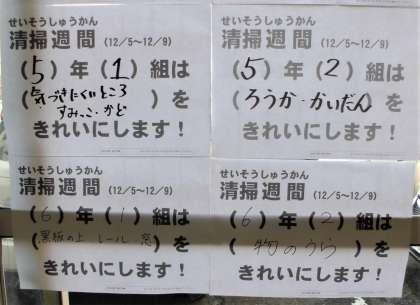 せいそうしゅうかん
清掃週間 (12/5~12/9)
(5)年(1)組は
(気づきにくいところ
すみっこ・かど)を
きれいにします!
せいそうしゅうかん
清掃週間 (12/5~12/9)
(5)年(2)組は
(ろうか・かいだん)を
きれいにします!
せいそうしゅうかん
清掃週間 (12/5~12/9)
(6)年(1)組は
(黒板の上 レール 窓)を
きれいにします!
せいそうしゅうかん
清掃週間 (12/5~12/9)
(6)年(2)組は
(物のうら)を
きれいにします!